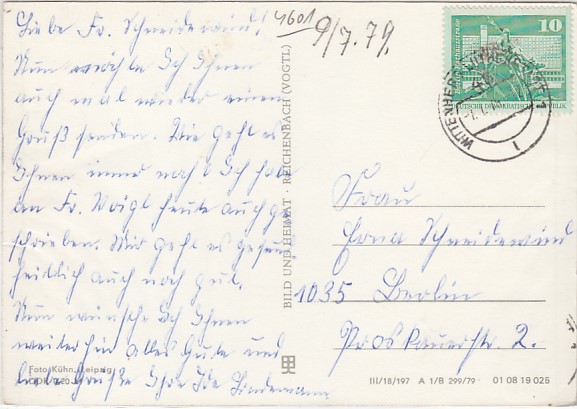 Liebe Fr. Schneidewind!
Nun möchte Ich Ihnen
auch mal wieder einen
Gruß senden. Wie geht es
Ihnen immer noch Ich habe
an Fr. Voigt heute auch ge
schrieben. Mir geht es gesund
heitlich auch noch gut.
Nun wünsche Ich Ihnen
weiterhin alles Gute und
liebe Grüße Ihre Ida Lindemann
4601
9/7.79.
10
DEUTSCHE DEMOKRATISCHE REPUBLIK
BILD UND HEIMAT · REICHENBACH (VOGTL)
Frau
Schneidewind
1035 Berlin
Proskauerstr. 2.
Foto: Kühn, Leipzig
III/18/197 A 1/B 299/79 01 08 19 025